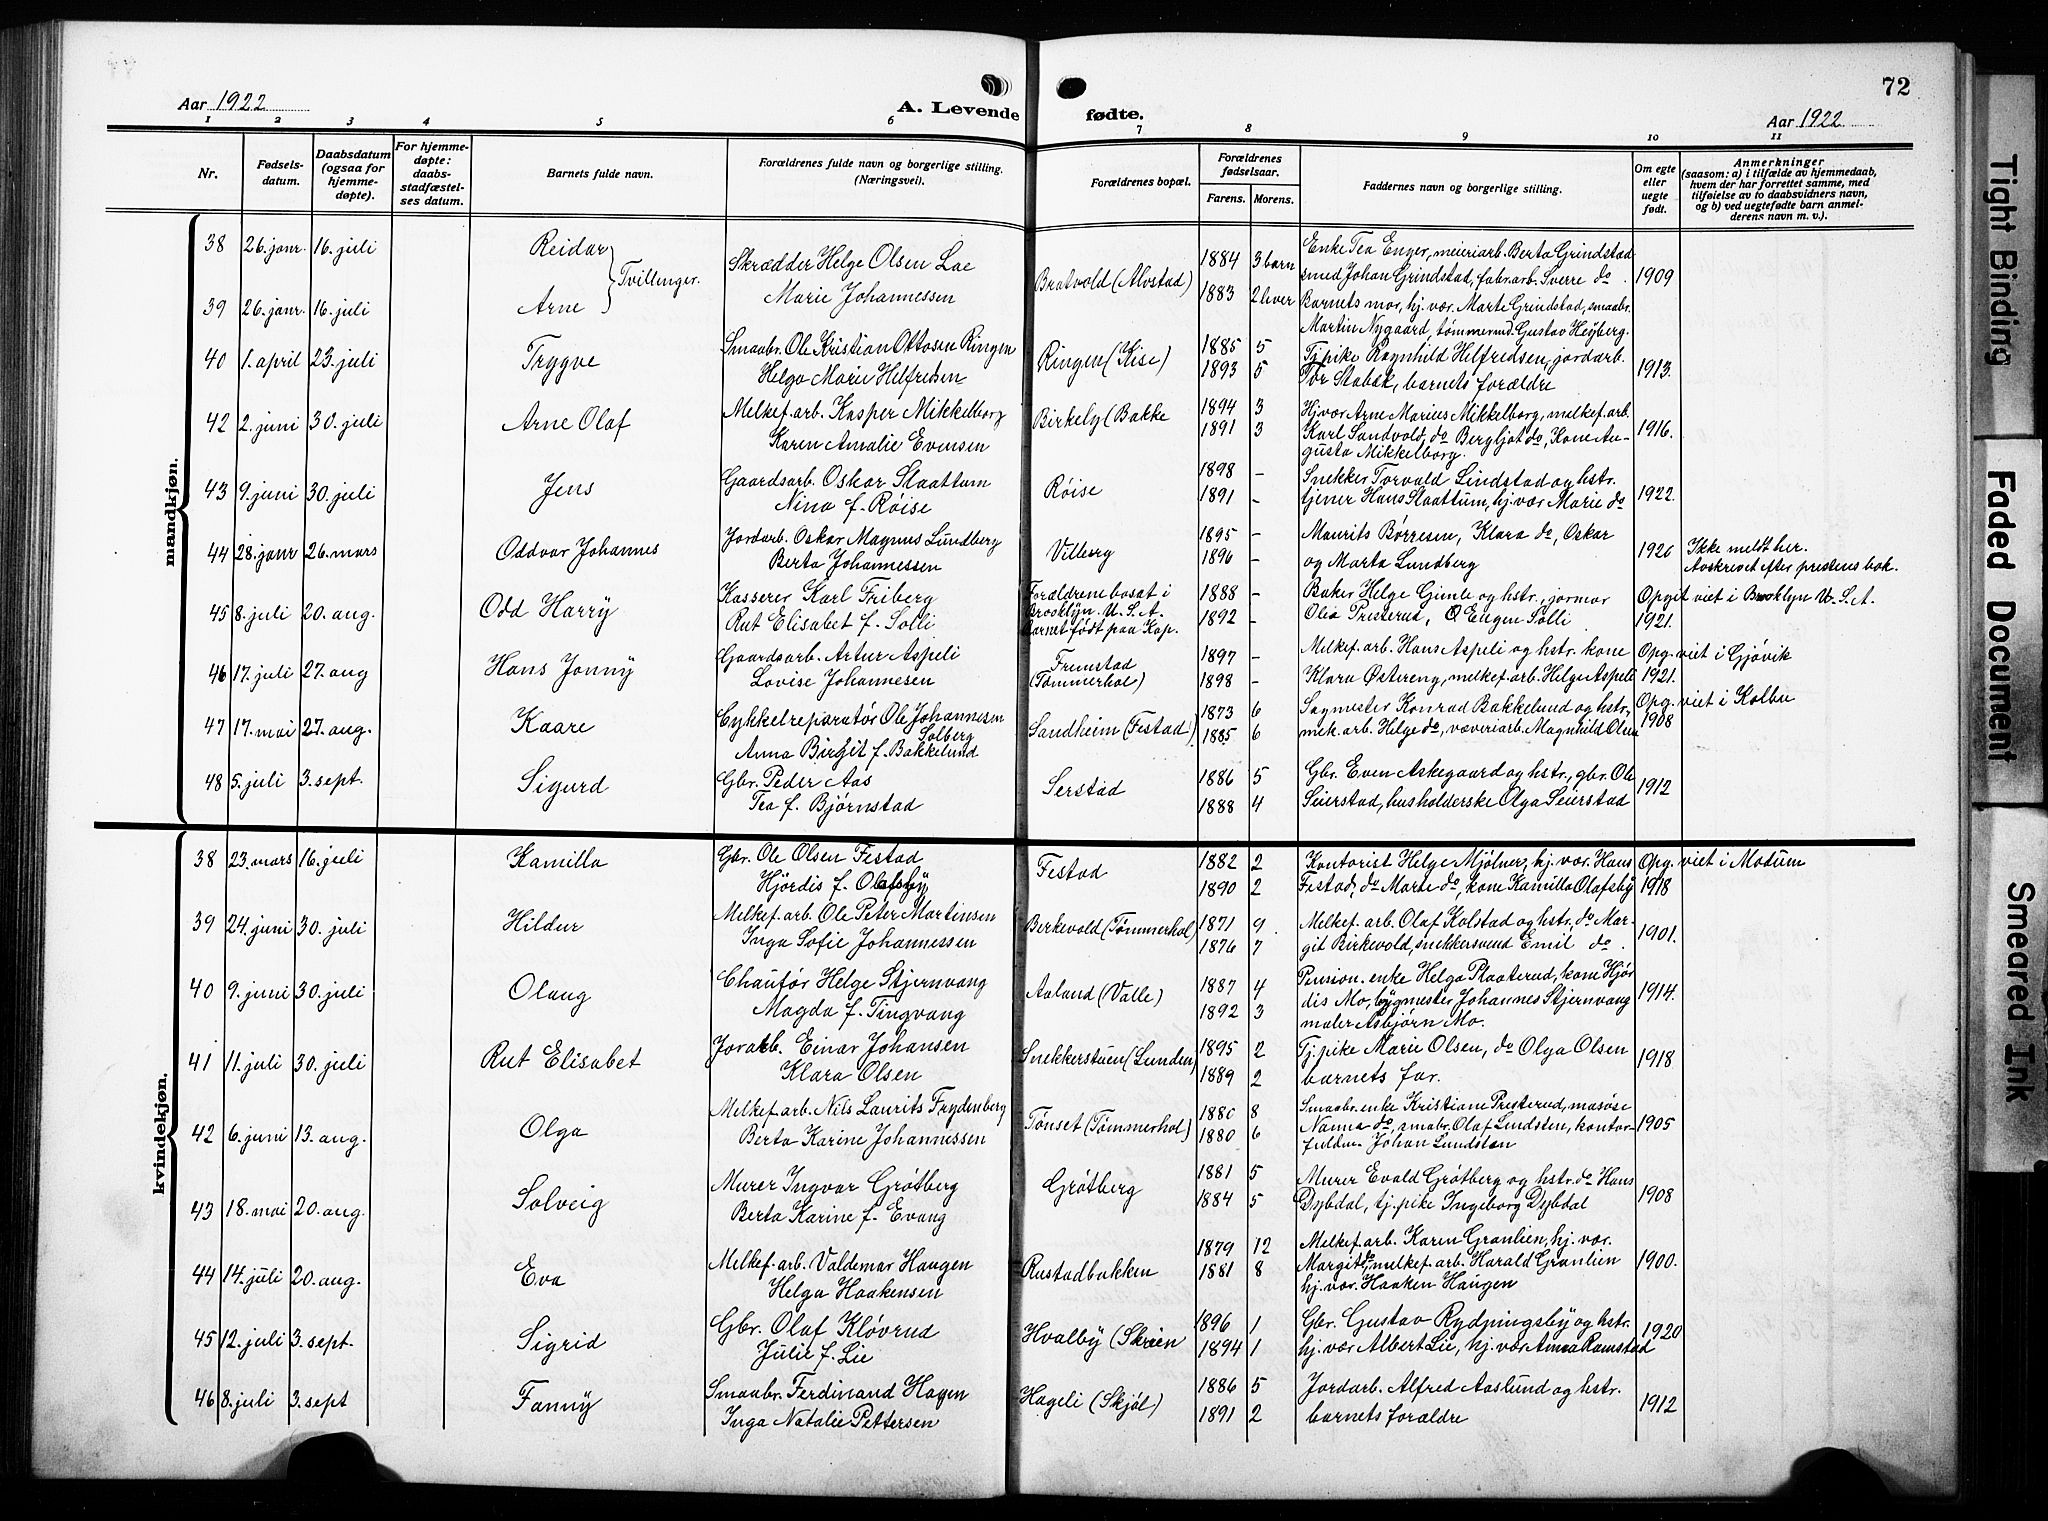 72
Aar 1922 A. Levende fødte. Aar 1922
1 2 3 4 5 6 7 8 9 10 11
Nr. Fødsels-datum. Daabsdatum (ogsaa for hjemme-døpte). For hjemme-døpte: daabs-stadfæstel-ses datum. Barnets fulde navn. Forældrenes fulde navn og borgerlige stilling. (Næringsvei). Forældrenes bopæl. Forældrenes fødselsaar. Farens. Morens. Faddernes navn og borgerlige stilling. Om egte eller uegte født. Anmerkninger (saasom: a) i tilfælde av hjemmedaab, hvem der har forrettet samme, med tilføielse av to daabsvidners navn, og b) ved uegtefødte barn anmel-derens navn m. v.).
mandkjøn.
38 26. janr. 16. juli Reidar Tvillinger. Skrædder Helge Olsen Lae Bratvold (Alvstad) 1884 3 barn Enke Tea Enger, meieriarb. Berta Grindstad
smed Johan Grindstad, fabr.arb. Sverre do. 1909
39 26. janr. 16. juli Arne Marie Johannessen 1883 2 lever Barnets mor, hj.vær. Marte Grindstad, smaabr.
Martin Nygaard, tømmermd. Gustav Heyberg.
40 1. april 23. juli Trygve Smaabr. Ole Kristian Ottosen Ringen Ringen (Kise) 1885 5 Tj.pike Ragnhild Helfredsen, jordarb. 1913.
Helga Marie Helfredsen 1893 5 Tor Stabæk, barnets forældre
42 2. juni 30. juli Arne Olaf Melkef. arb. Kasper Mikkelborg Birkely (Bakke 1894 3 Hj.vær Arne Marius Mikkelborg, melkef. arb.
Karen Amalie Evensen 1891 3 Karl Sandvold, do Bergljot do, Kone Au- 1916.
gusta Mikkelborg.
43 9. juni 30. juli Jens Gaardsarb. Oskar Staattum Røise 1898 - Snekker Torvald Lindstad og hstr.
Nina f. Røise 1891 - tjener Hans Staattum, hj.vær Marie do 1922.
44 28. janr 26. mars Oddvar Johannes Jordarb. Oskar Magnus Lundberg Vilberg 1895 - Maurits Børresen, Klara do, Oskar
Berta Johannessen 1896 - og Marta Lundberg 1920 Ikke meldt her.
Avskrevet efter prestens bok.
45 8. juli 20. aug. Odd Harry Kasserer Karl Friberg Forældrene bosat i 1888 - Baker Helge Gimle og hstr., jormor Opgit viet i Brooklyn U. S. A.
Rut Elisabet f. Solli. Brooklyn. U. S. A. 1892 - Olia Presterud, O Eugen Solli 1921.
Barnet født paa Kap.
46 17. juli 27. aug Hans Jonny Gaardsarb. Artur Aspeli 1897 - Melkef. arb. Hans Aspeli og hstr. kone Opg. viet i Gjøvik
Lovise Johannesen (Tømmerhol) 1898 - Klara Østereng, melkef. arb. Helge Aspeli 1921.
47 17. mai 27. aug. Kaare Cykkelreparatør Ole Johannesen Solberg Sandheim (Festad) 1873 6 Sagmester Konrad Bakkelund og hstr. Opg. viet i Kolbu
Anna Birgit f. Bakkelund 1885 6 mek. arb. Helge do, væveriarb. Magnhild Olsen 1908
48 5. juli 3. sept. Sigurd Gbr. Peder Aas Serstad 1886 5 Gbr. Even Askegaard og hstr., gbr. Ole
Tea f. Bjørnstad 1888 4 Seierstad, husholderske Olga Seierstad 1912
kvindekjøn.
38 23. mars 16. juli Kamilla Gbr. Ole Olsen Festad Festad 1882 2 Kontorist Helge Mjølner, hj. vær. Hans Opg. viet i Modum
Hjørdis f. Olafsby 1890 2 Festad, do Marte do, kone Kamilla Olafsby 1918
39 24. juni 30. juli Hildur Melkef. arb. Ole Peter Martinsen Berkevold (Tømmerhol) 1871 9 Melkef. arb. Olaf Kolstad og hstr., do Mar-
Inga Sofie Johannessen 1876 7 git Birkevold, snekkersvend Emil do. 1901.
40 9. juni 30. juli Olaug Chaufør Helge Stjernvang Aaland (Valle) 1887 4 Pension. enke Helga Plaaterud, kone Hjør
Magda f. Tingvang 1892 3 dis Mo, bygmester Johannes Stjernvang 1914.
maler Asbjørn Mo.
41 11. juli 30. juli Rut Elisabet Jordarb. Einar Johansen Snekkerstuen (Lunden) 1895 2 Tj.pike Marie Olsen, do Olga Olsen 1918
Klara Olsen 1889 2 barnets far.
42 6. juni 13. aug. Olga Melkef. arb. Nils Laurits Frydenberg Tønset (Tømmerhol) 1880 8 Smaabr. enke Kristiane Presterud, masøse
Berta Karine Johannessen 1880 6 Nanna do, smabr. Olaf Lundsten, kontor- 1905
fuldm. Johan Lundsten
43 18. mai 20. aug. Solveig Murer Ingvar Grøtberg Grøtberg 1881 5 Murer Evald Grøtberg og hstr. do Hans
Berta Karine f. Evang 1884 5 Dybdal, tj.pike Ingeborg Dybdal 1908
44 14. juli 20. aug. Eva Melkef. arb. Valdemar Haugen Rustadbakken 1879 12 Melkef. arb. Karen Granlien, hj. vær.
Helga Haakensen 1881 8 Margit do, melkef. arb. Harald Granlien 1900.
hj. vær. Haaken Haugen
45 12. juli 3. sept. Sigrid Gbr. Olaf Kløvrud Hvalby (Skreien 1896 1 Gbr. Gustav Rydningsby og hstr. 1920
Julie f. Lie 1894 1 hj. vær Albert Lie, hj. vær Anna Ramstad
46 8. juli 3. sept Fanny Smaabr. Ferdinand Hagen Hageli (Skjøl) 1886 5 Jordarb. Alfred Aaslund og hstr. 1912
Inga Natalie Pettersen 1891 2 barnets forældre
Tight Binding
Faded Document
Smeared Ink